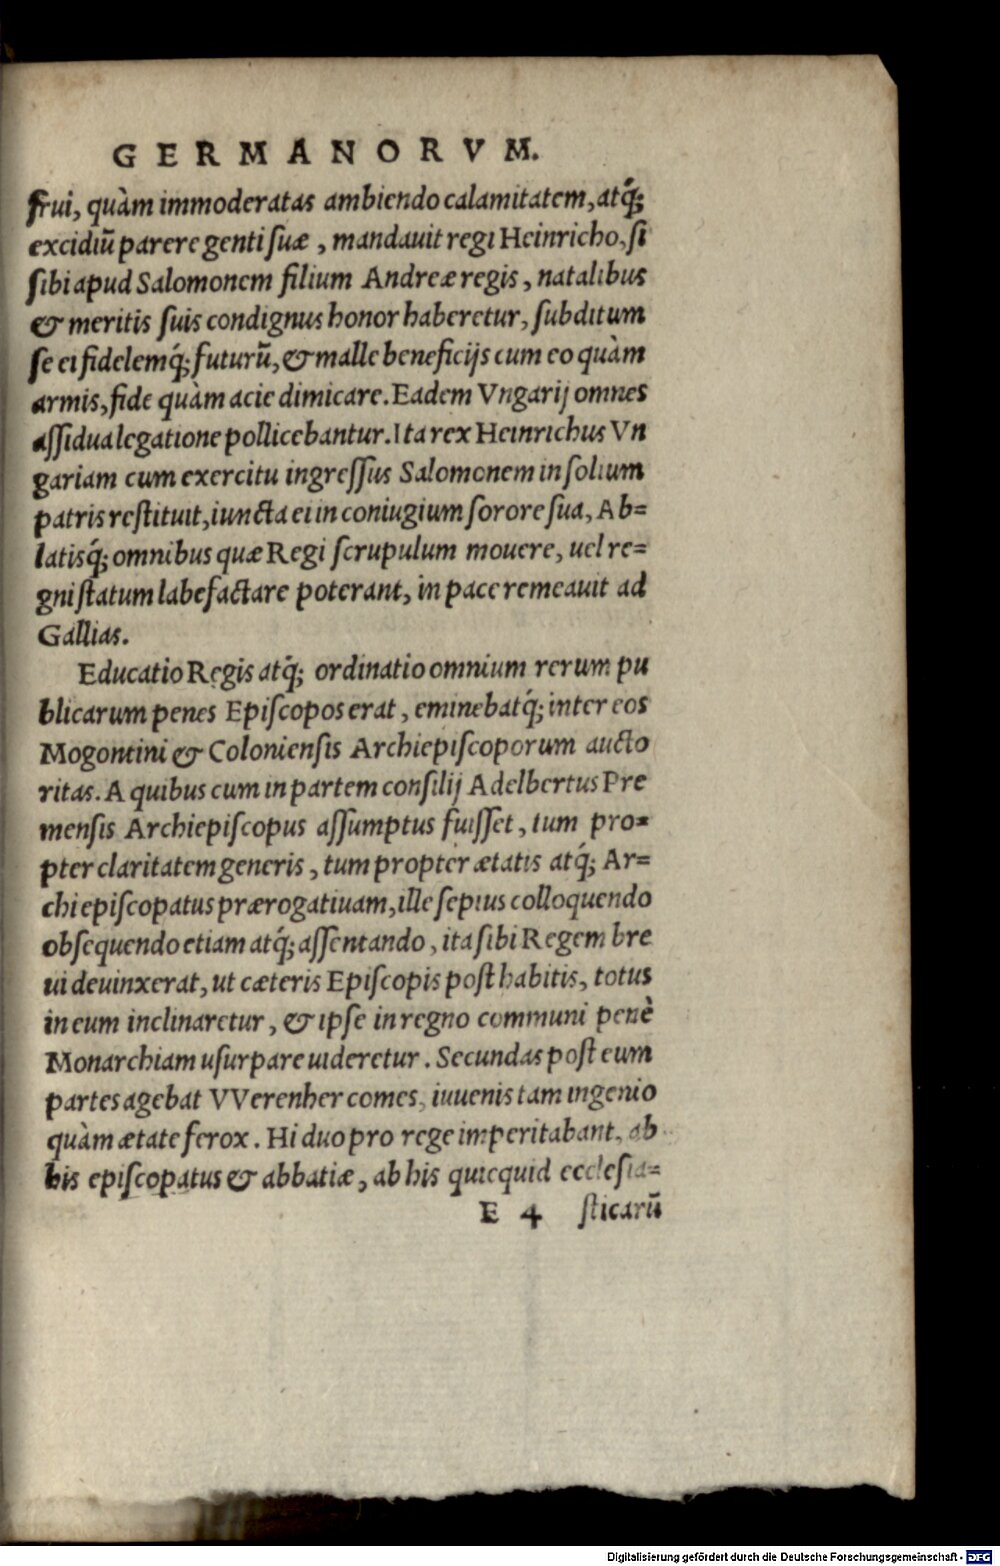 GERMANORVM.
frui, quàm immoderatas ambiendo calamitatem, atq́;
excidiũ parere genti suæ, mandauit regi Heinricho, si
sibi apud Salomonem filium Andreæ regis, natalibus
& meritis suis condignus honor haberetur, subditum
se ei fidelemq́; futurũ, & malle beneficijs cum eo quàm
armis, fide quàm acie dimicare. Eadem Vngarij omnes
assidua legatione pollicebantur. Ita rex Heinrichus Vn
gariam cum exercitu ingressus Salomonem in solium
patris restituit, iuncta ei in coniugium sorore sua, Ab=
latisq́; omnibus quæ Regi scrupulum mouere, uel re=
gni statum labefactare poterant, in pace remeauit ad
Gallias.
Educatio Regis atq́; ordinatio omnium rerum pu
blicarum penes Episcopos erat, eminebatq́; inter eos
Mogontini & Coloniensis Archiepiscoporum aucto
ritas. A quibus cum in partem consilij Adelbertus Pre
mensis Archiepiscopus assumptus fuisset, tum pro=
pter claritatem generis, tum propter ætatis atq́; Ar=
chiepiscopatus prærogatiuam, ille sepius colloquendo
obsequendo etiam atq́; assentando, ita sibi Regem bre
ui deuinxerat, ut cæteris Episcopis posthabitis, totus
in eum inclinaretur, & ipse in regno communi penè
Monarchiam usurpare uideretur. Secundas post eum
partes agebat VVerenher comes, iuuenis tam ingenio
quàm ætate ferox. Hi duo pro rege imperitabant, ab
his episcopatus & abbatiæ, ab his quicquid ecclesia=
E 4 sticarũ
Digitalisierung gefördert durch die Deutsche Forschungsgemeinschaft - DFG